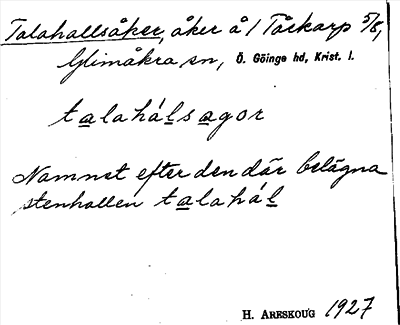 Talahallsåker, åker å 1 Tåskarp 5/8,
Glimåkra sn, Ö. Göinge hd, Krist. l.
talahálsagor
Namnet efter den där belägna
stenhallen talahál
H. Areskoug 1927